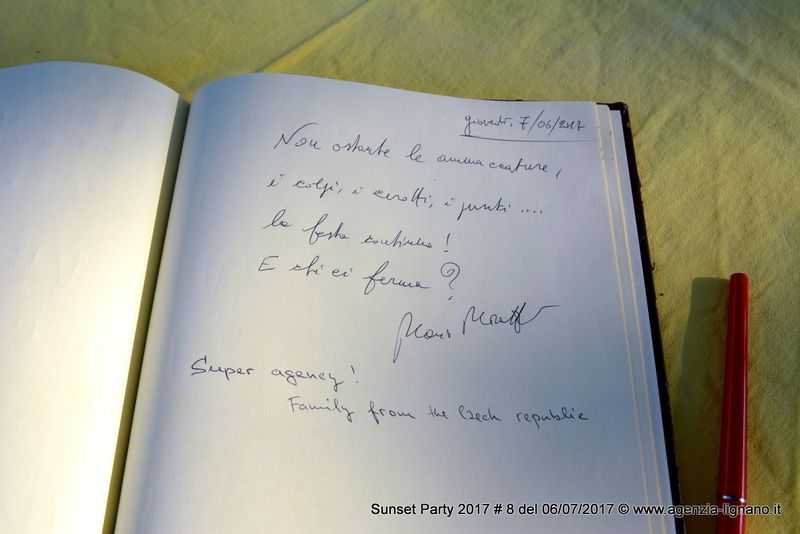 giovedì, 7/06/2017
Non ostante le ammaccature,
i colpi, i cerotti, i punti ....
la festa continua!
E chi ci ferma?
Super agency!
Family from the Czech republic
Sunset Party 2017 # 8 del 06/07/2017 © www.agenzia-lignano.it